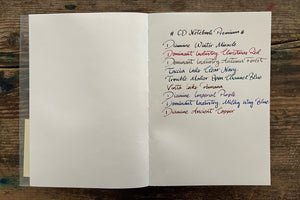 # CD Notebook Premium #
Diamine Winter Miracle
Dominant Industry Christmas Red
Dominant Industry Autumn Forest
Taccia inks Clear Navy
Trouble Maker Open Channel Blue
Vinta inks Humana
Diamine Imperial Purple
Dominant Industry Milky Way Blue
Diamine Ancient Copper